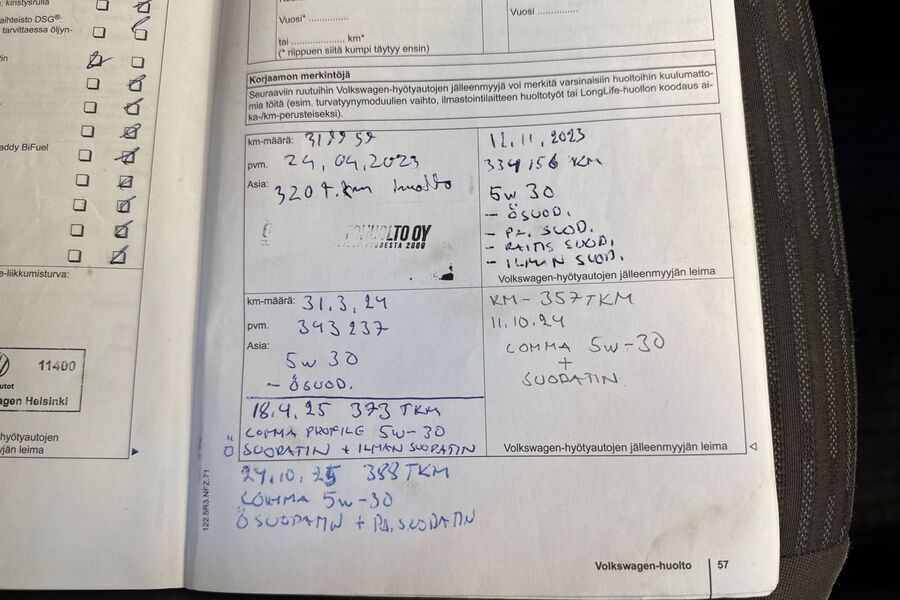 kiristysrulla
aihteisto DSG®-
tarvittaessa öljyn-
tin
addy BiFuel
e-liikkumisturva:
11400
utot
agen Helsinki
hyötyautojen
yjän leima
Vuosi* ...............
tai .................. km*
(* riippuen siitä kumpi täytyy ensin)
Vuosi ..............
Korjaamon merkintöjä
Seuraaviin ruutuihin Volkswagen-hyötyautojen jälleenmyyjä voi merkitä varsinaisiin huoltoihin kuulumatto-
mia töitä (esim. turvatyynymoduulien vaihto, ilmastointilaitteen huoltotyöt tai LongLife-huollon koodaus ai-
ka-/km-perusteiseksi).
km-määrä:
pvm. 24.04.2023
Asia: 320 t.km huolto
OY
12.11.2023
334156 KM
5W 30
- ÖSUOD.
- PA. SUOD.
- RAITIS SUOD.
- ILMAN SUOD.
Volkswagen-hyötyautojen jälleenmyyjän leima
km-määrä: 31.3.24
pvm. 343 237
Asia:
5W 30
- ÖSUOD.
18.4.25 373 TKM
COMMA PROFILE 5W-30
Ö SUODATIN + ILMAN SUODATIN
KM- 357TKM
11.10.24
COMMA 5W-30
+
SUODATIN
Volkswagen-hyötyautojen jälleenmyyjän leima
.10.25 388TKM
COMMA 5W-30
Ö SUODATIN + PA.SUODATIN
122.5R3.NFZ.71
Volkswagen-huolto 57